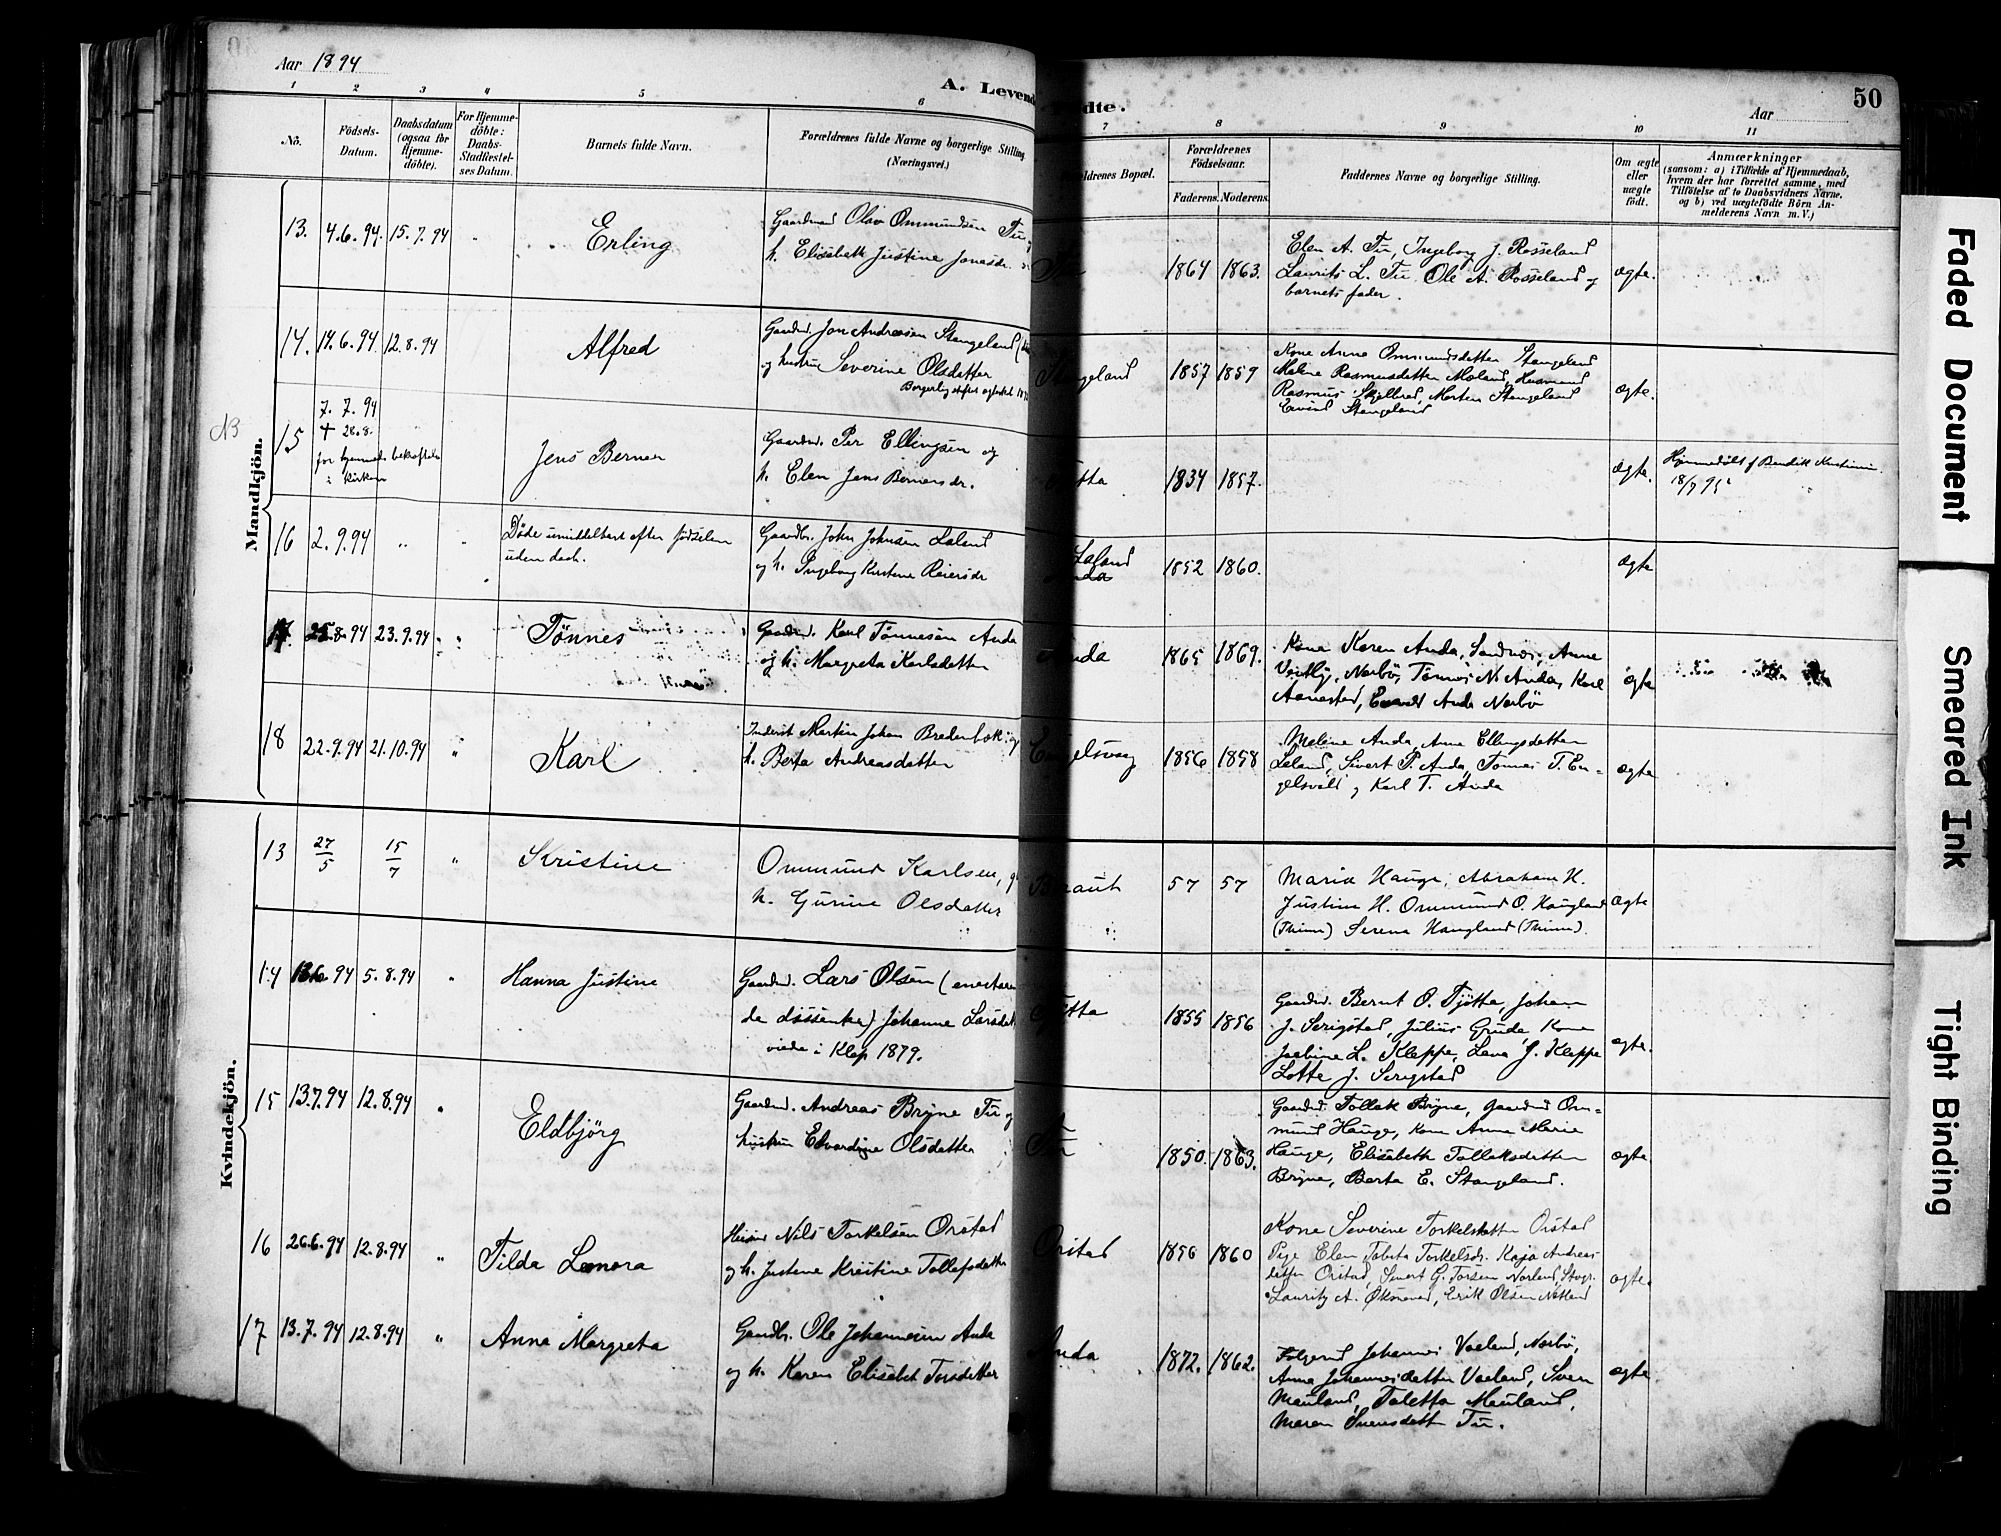 Aar 1894
A. Levend
ødte.
Aar
50
1 2 3 4 5 6 7 8 9 10 11
No.
Fødsels-
Datum.
Daabsdatum
(ogsaa for
Hjemme-
døbte).
For Hjemme-
døbte:
Daabs-
Stadfæstel-
ses Datum.
Barnets fulde Navn.
Forældrenes fulde Navne og borgerlige Stilling
(Næringsvei.)
ldrenes Bopæl.
Forældrenes
Fødselsaar.
Faderens. Moderens.
Faddernes Navne og borgerlige Stilling.
Om ægte
eller
uægte
født.
Anmærkninger
(saasom: a) i Tilfælde af Hjemmedaab,
hvem der har forrettet samme, med
Tilføielse af to Daabsvidners Navne.
og b) ved uægtefødte Børn An-
melderens Navn m. V.)
Mandkjön.
13. 4.6.94. 15.7.94 " Erling
Gaardmd Olav Ommundsen Tu
h. Elisabeth Justine Jonasdr.
1864 1863.
Elen A. Tu, Ingeborg J. Rosseland
Laurits L. Tu Ole A. Rosseland og
barnets fader.
ægte.
14. 14.6.94 12.8.94 Alfred
Gaardmd. Jon Andreasen Stangeland
og hustru Severine Olsdatter
Stangeland 1857 1859
Kone Anne Ommundsdatter Stangeland
Malene Rasmusdatter Moland, Husmand
Rasmus Skjelbred, Morten Stangeland
Eivind Stangeland
ægte.
NB
15 7.7.94
+ 28.8.
Jens Berner
Gaardmd. Per Ellingsen og
h. Elen Jens Bernersdr.
1834 1857.
ægte.
Hjemmedøbt f Bendik
16 2.9.94 " " Døde umiddelbart efter fødselen
uden daab.
Gaardbr. John Johnsen Laland
og h. Ingeborg Kirstine Reiersdr
Laland
Anda
1852 1860.
ægte
17. 25.8.94 23.9.94 " Tönnes
Gaardmd. Karl Tönnesen Anda
og h. Margreta Karlsdatter
Anda 1865 1869.
Kone Karen Anda, Sandnes, Anne
Norbö, Tönnes N. Anda, Karl
Aanestad, Anda Norbö
ægte
18 22.9.94 21.10.94 " Karl
Inderst Martin Johan Bredenbæk og
h. Berta Andreasdatter
1856 1858
Meline Anda, Anne Ellingsdatter
Laland, Sivert P. Anda, Tönnes T. En-
gelsvold og Karl T. Anda
ægte
Kvindekjön.
13 27/5 15/7 " Kristine
Ommund Karlsen, og
h. Gurine Olsdatter
Braut 57 57
Maria Hauge, Abraham H.
Justine H. Ommund O. Haugland
(Thime) Serena Haugland (Thime).
ægte
14 13.6.94 5.8.94 " Hanna Justine
Gaardmd. Lars Olsen (
Johanne Larsdat
viede i Klep 1879.
Tjötta 1855 1856
Gaardmd. Bernt O. Tjötta, Johan
J. Serigstad, Julius Grude, Kone
Jacbine L. Kleppe, Lena J. Kleppe
Lotte J. Serigstad
ægte.
15 13.7.94 12.8.94 " Eldbjörg
Gaardmd. Andreas Bryne Tu og
hustru Edvardine Olsdatter
Tu 1850. 1863.
Gaardmd. Tollak Bryne, Gaardmd Om-
mund Hauge, Kone Anne Marie
Hauge, Elisabeth Tollaksdatter
Bryne, Berta E. Stangeland.
ægte
16 26.6.94 12.8.94 " Tilda Lenora
Nils Torkelsen Orstad
og h. Justine Kristine Tollefsdatter
Orstad 1856 1860
Kone Severine Torkelsdatter Orstad
Pige Elen Tobita Torkelsdr. Kaja Andreas-
datter Orstad, Sivert G. Torsen Norland,
Lauritz A. Öksnevad, Erik Olsen
ægte.
17 13.7.94 12.8.94 " Anna Margreta
Gaardbr. Ole Johannesen Anda
og h. Karen Elisabet Torsdatter
Anda 1872. 1862.
Folgemd Johannes Vaeland, Norbö,
Anna Johannesdatter Vaeland, Sven
Meuland, Taletta Meuland,
Maren Svensdatter Tu.
ægte.
Faded Document
Smeared Ink
Tight Binding